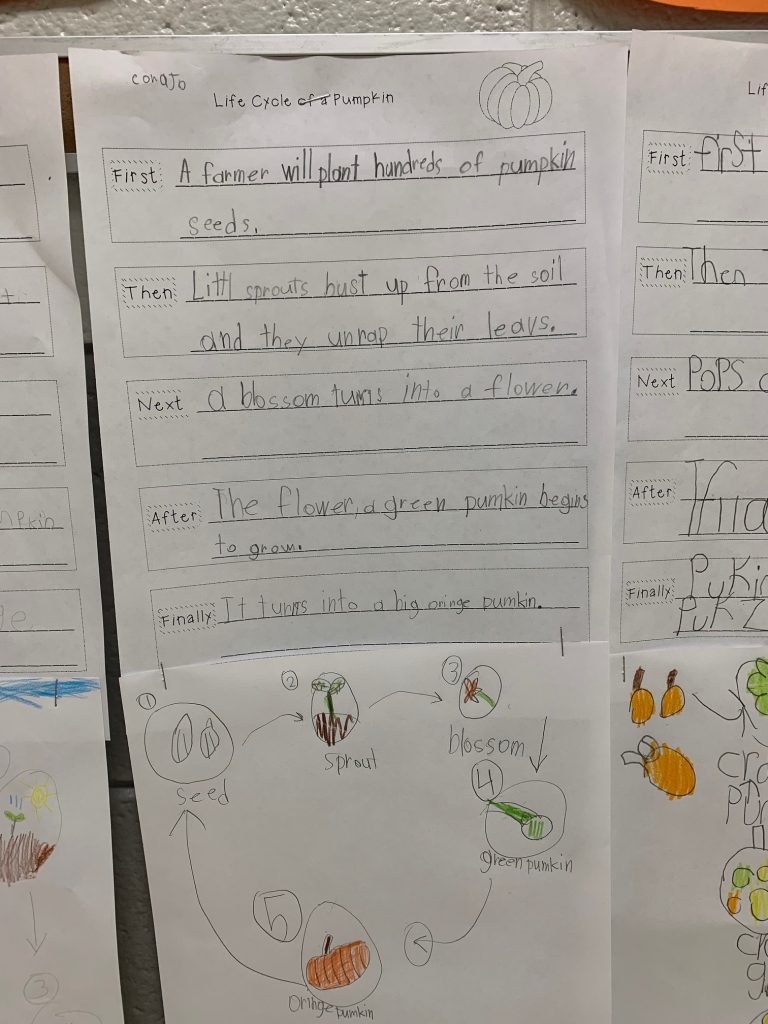 conaJo
Life Cycle of a Pumpkin
First
A farmer will plant hundreds of pumpkin
seeds.
Then
Littl sprouts bust up from the soil
and they unrap their leavs.
Next
a blossom turns into a flower.
After
The flower, a green pumkin begins
to grow.
Finally
It turns into a big oringe pumkin.
1
seed
2
sprout
3
blossom
4
green pumkin
5
Oringe pumkin
Lif
First
first
Then
Then
Next
PoPS
After
Finally
3